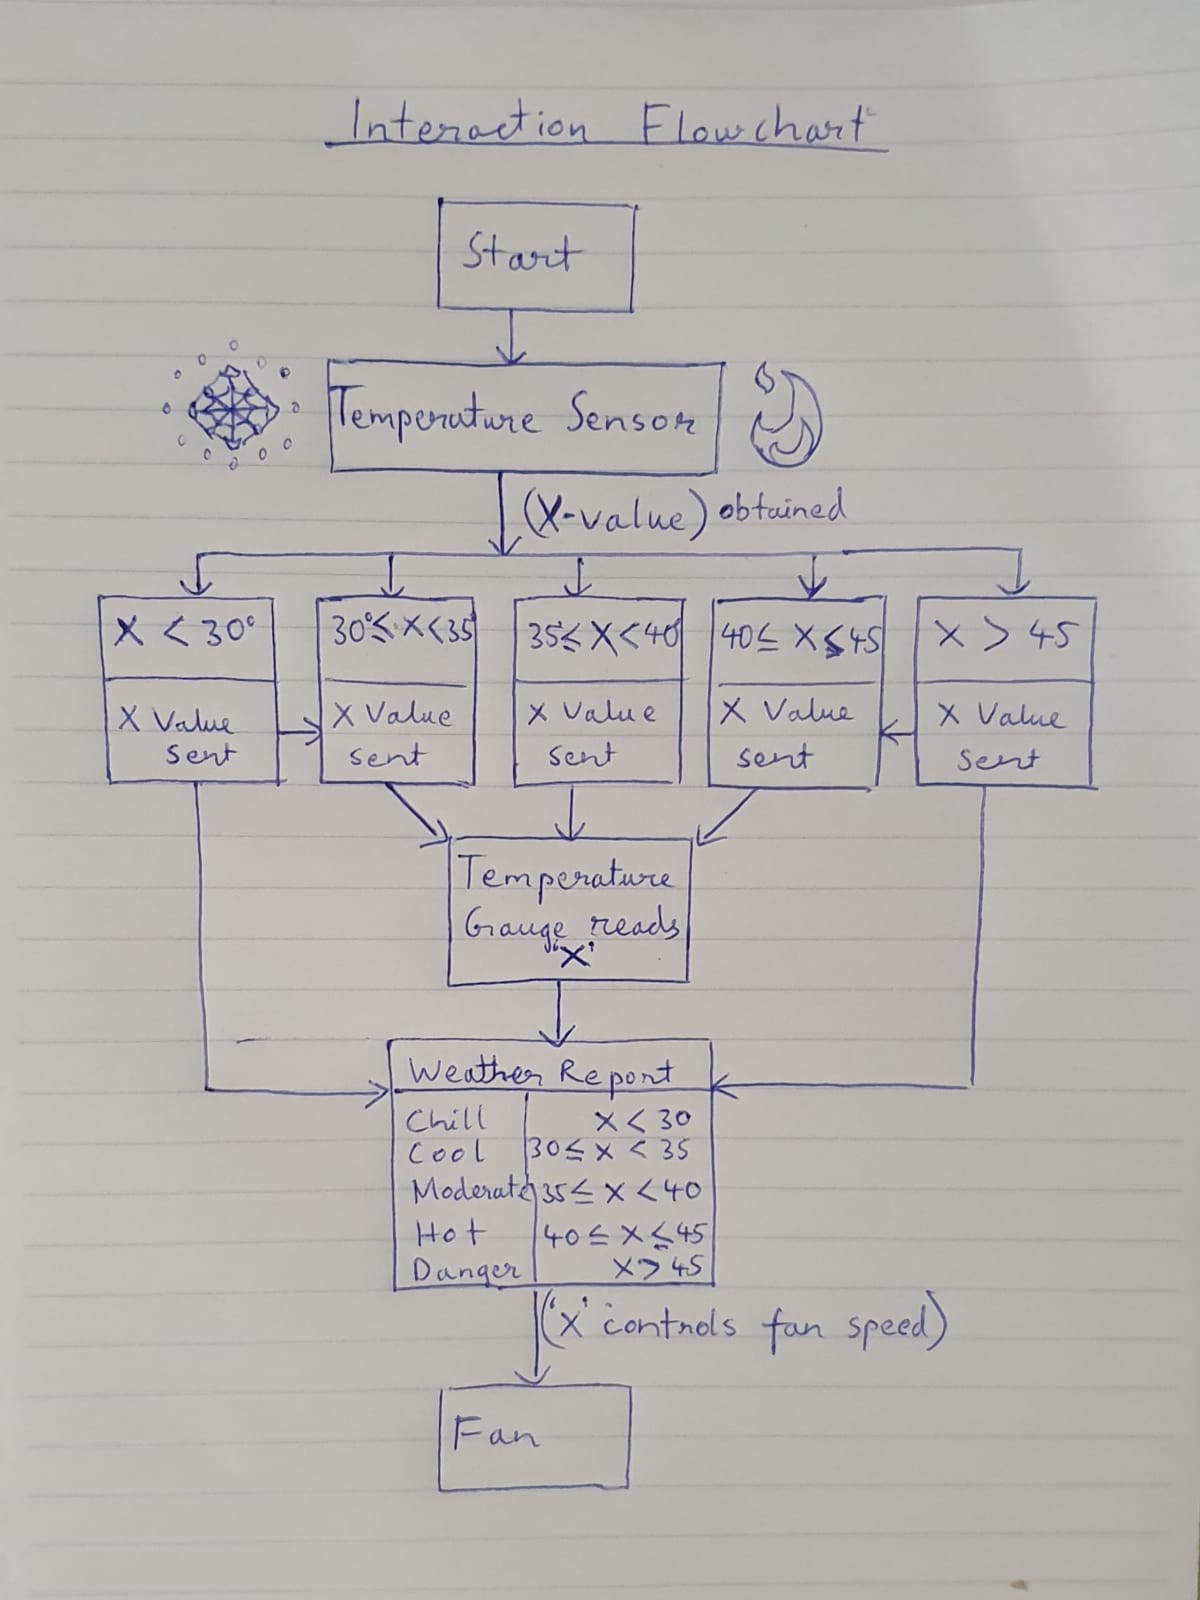 Interaction Flowchart
Start
Temperature Sensor
(X-value) obtained
X < 30°
30°≤ X<35
35≤ X<40
40≤ X≤45
X > 45
X Value
sent
X Value
sent
X Value
sent
X Value
sent
X Value
sent
Temperature
Gauge reads
'X'
Weather Report
Chill X < 30
Cool 30≤ X < 35
Moderate 35≤ X < 40
Hot 40≤ X ≤45
Danger X> 45
('X' controls fan speed)
Fan